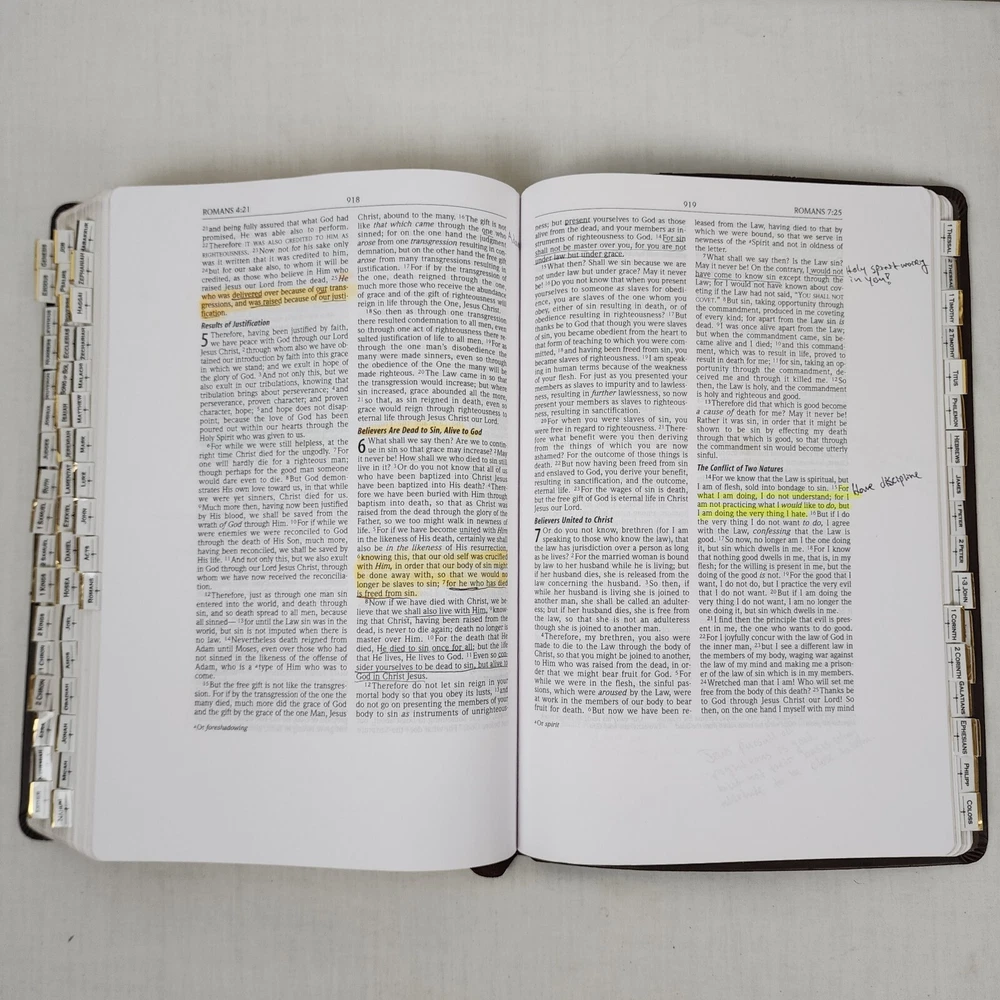 ROMANS 4:21
918
21 and being fully assured that what God had
promised, He was able also to perform.
22 Therefore IT WAS ALSO CREDITED TO HIM AS
RIGHTEOUSNESS. 23 Now not for his sake only
was it written that it was credited to him,
24 but for our sake also, to whom it will be
credited, as those who believe in Him who
raised Jesus our Lord from the dead, 25 He
who was delivered over because of our trans-
gressions, and was raised because of our justi-
fication.
Results of Justification
5 Therefore, having been justified by faith,
we have peace with God through our Lord
Jesus Christ, 2 through whom also we have ob-
tained our introduction by faith into this grace
in which we stand; and we exult in hope of
the glory of God. 3 And not only this, but we
also exult in our tribulations, knowing that
tribulation brings about perseverance; 4 and
perseverance, proven character; and proven
character, hope; 5 and hope does not disap-
point, because the love of God has been
poured out within our hearts through the
Holy Spirit who was given to us.
6 For while we were still helpless, at the
right time Christ died for the ungodly. 7 For
one will hardly die for a righteous man;
though perhaps for the good man someone
would dare even to die. 8 But God demon-
strates His own love toward us, in that while
we were yet sinners, Christ died for us.
9 Much more then, having now been justified
by His blood, we shall be saved from the
wrath of God through Him. 10 For if while we
were enemies we were reconciled to God
through the death of His Son, much more,
having been reconciled, we shall be saved by
His life. 11 And not only this, but we also exult
in God through our Lord Jesus Christ, through
whom we have now received the reconcilia-
tion.
12 Therefore, just as through one man sin
entered into the world, and death through
sin, and so death spread to all men, because
all sinned— 13 for until the Law sin was in the
world, but sin is not imputed when there is
no law. 14 Nevertheless death reigned from
Adam until Moses, even over those who had
not sinned in the likeness of the offense of
Adam, who is a type of Him who was to
come.
15 But the free gift is not like the transgres-
sion. For if by the transgression of the one
the many died, much more did the grace of God
and the gift by the grace of the one Man, Jesus
a Or foreshadowing
Christ, abound to the many. 16 The gift is not
like that which came through the one who
sinned; for on the one hand the judgment
arose from one transgression resulting in con-
demnation, but on the other hand the free gift
arose from many transgressions resulting in
justification. 17 For if by the transgression of
the one, death reigned through the one,
much more those who receive the abundance
of grace and of the gift of righteousness will
reign in life through the One, Jesus Christ.
18 So then as through one transgression there
resulted condemnation to all men, even so
through one act of righteousness there re-
sulted justification of life to all men. 19 For as
through the one man's disobedience the
many were made sinners, even so through
the obedience of the One the many will be
made righteous. 20 The Law came in so that
the transgression would increase; but where
sin increased, grace abounded all the more,
21 so that, as sin reigned in death, even so
grace would reign through righteousness to
eternal life through Jesus Christ our Lord.
Believers Are Dead to Sin, Alive to God
6 What shall we say then? Are we to contin-
ue in sin so that grace may increase? 2 May
it never be! How shall we who died to sin still
live in it? 3 Or do you not know that all of us
who have been baptized into Christ Jesus
have been baptized into His death? 4 There-
fore we have been buried with Him through
baptism into death, so that as Christ was
raised from the dead through the glory of the
Father, so we too might walk in newness of
life. 5 For if we have become united with Him
in the likeness of His death, certainly we shall
also be in the likeness of His resurrection,
6 knowing this, that our old self was crucified
with Him, in order that our body of sin might
be done away with, so that we would no
longer be slaves to sin; 7 for he who has died
is freed from sin.
8 Now if we have died with Christ, we be-
lieve that we shall also live with Him, 9 know-
ing that Christ, having been raised from the
dead, is never to die again; death no longer is
master over Him. 10 For the death that He
died, He died to sin once for all; but the life
that He lives, He lives to God. 11 Even so con-
sider yourselves to be dead to sin, but alive to
God in Christ Jesus.
12 Therefore do not let sin reign in your
mortal body so that you obey its lusts, 13 and
do not go on presenting the members of your
body to sin as instruments of unrighteous-
919
ROMANS 7:25
ness; but present yourselves to God as those
alive from the dead, and your members as in-
struments of righteousness to God. 14 For sin
shall not be master over you, for you are not
under law but under grace.
15 What then? Shall we sin because we are
not under law but under grace? May it never
be! 16 Do you not know that when you present
yourselves to someone as slaves for obedi-
ence, you are slaves of the one whom you
obey, either of sin resulting in death, or of
obedience resulting in righteousness? 17 But
thanks be to God that though you were slaves
of sin, you became obedient from the heart to
that form of teaching to which you were com-
mitted, 18 and having been freed from sin, you
became slaves of righteousness. 19 I am speak-
ing in human terms because of the weakness
of your flesh. For just as you presented your
members as slaves to impurity and to lawless-
ness, resulting in further lawlessness, so now
present your members as slaves to righteous-
ness, resulting in sanctification.
20 For when you were slaves of sin, you
were free in regard to righteousness. 21 There-
fore what benefit were you then deriving
from the things of which you are now
ashamed? For the outcome of those things is
death. 22 But now having been freed from sin
and enslaved to God, you derive your benefit,
resulting in sanctification, and the outcome,
eternal life. 23 For the wages of sin is death,
but the free gift of God is eternal life in Christ
Jesus our Lord.
Believers United to Christ
7 Or do you not know, brethren (for I am
speaking to those who know the law), that
the law has jurisdiction over a person as long
as he lives? 2 For the married woman is bound
by law to her husband while he is living; but
if her husband dies, she is released from the
law concerning the husband. 3 So then, if
while her husband is living she is joined to
another man, she shall be called an adulter-
ess; but if her husband dies, she is free from
the law, so that she is not an adulteress
though she is joined to another man.
4 Therefore, my brethren, you also were
made to die to the Law through the body of
Christ, so that you might be joined to another,
to Him who was raised from the dead, in or-
der that we might bear fruit for God. 5 For
while we were in the flesh, the sinful pas-
sions, which were aroused by the Law, were
at work in the members of our body to bear
fruit for death. 6 But now we have been re-
a Or spirit
leased from the Law, having died to that by
which we were bound, so that we serve in
newness of the a Spirit and not in oldness of
the letter.
7 What shall we say then? Is the Law sin?
May it never be! On the contrary, I would not
have come to know sin except through the
Law; for I would not have known about cov-
eting if the Law had not said, "YOU SHALL NOT
COVET." 8 But sin, taking opportunity through
the commandment, produced in me coveting
of every kind; for apart from the Law sin is
dead. 9 I was once alive apart from the Law;
but when the commandment came, sin be-
came alive and I died; 10 and this command-
ment, which was to result in life, proved to
result in death for me; 11 for sin, taking an op-
portunity through the commandment, de-
ceived me and through it killed me. 12 So
then, the Law is holy, and the commandment
is holy and righteous and good.
13 Therefore did that which is good become
a cause of death for me? May it never be!
Rather it was sin, in order that it might be
shown to be sin by effecting my death
through that which is good, so that through
the commandment sin would become utterly
sinful.
The Conflict of Two Natures
14 For we know that the Law is spiritual, but
I am of flesh, sold into bondage to sin. 15 For
what I am doing, I do not understand; for I
am not practicing what I would like to do, but
I am doing the very thing I hate. 16 But if I do
the very thing I do not want to do, I agree
with the Law, confessing that the Law is
good. 17 So now, no longer am I the one doing
it, but sin which dwells in me. 18 For I know
that nothing good dwells in me, that is, in my
flesh; for the willing is present in me, but the
doing of the good is not. 19 For the good that I
want, I do not do, but I practice the very evil
that I do not want. 20 But if I am doing the
very thing I do not want, I am no longer the
one doing it, but sin which dwells in me.
21 I find then the principle that evil is pres-
ent in me, the one who wants to do good.
22 For I joyfully concur with the law of God in
the inner man, 23 but I see a different law in
the members of my body, waging war against
the law of my mind and making me a prison-
er of the law of sin which is in my members.
24 Wretched man that I am! Who will set me
free from the body of this death? 25 Thanks be
to God through Jesus Christ our Lord! So
then, on the one hand I myself with my mind
Holy Spirit
in you?
Have discipline
1 THESSAL
2 THESSAL
1 TIMOTHY
2 TIMOTHY
TITUS
PHILEMON
HEBREWS
JAMES
1 PETER
2 PETER
1-3 JOHN
1 CORINTH
2 CORINTH
GALATIANS
EPHESIANS
PHILIPP
COLOSS
GENESIS
JOB
PSALMS
ZEPHANIAH
HAGGAI
ZECHARIAH
ECCLESIAS
MALACHI
ISAIAH
MATTHEW
JEREMIAH
MARK
RUTH
LAMENT
LUKE
1 SAMUEL
EZEKIEL
JOHN
2 SAMUEL
DANIEL
ACTS
1 KINGS
HOSEA
ROMANS
2 KINGS
JOEL
1 CHRON
AMOS
2 CHRON
OBADIAH
JONAH
MICAH